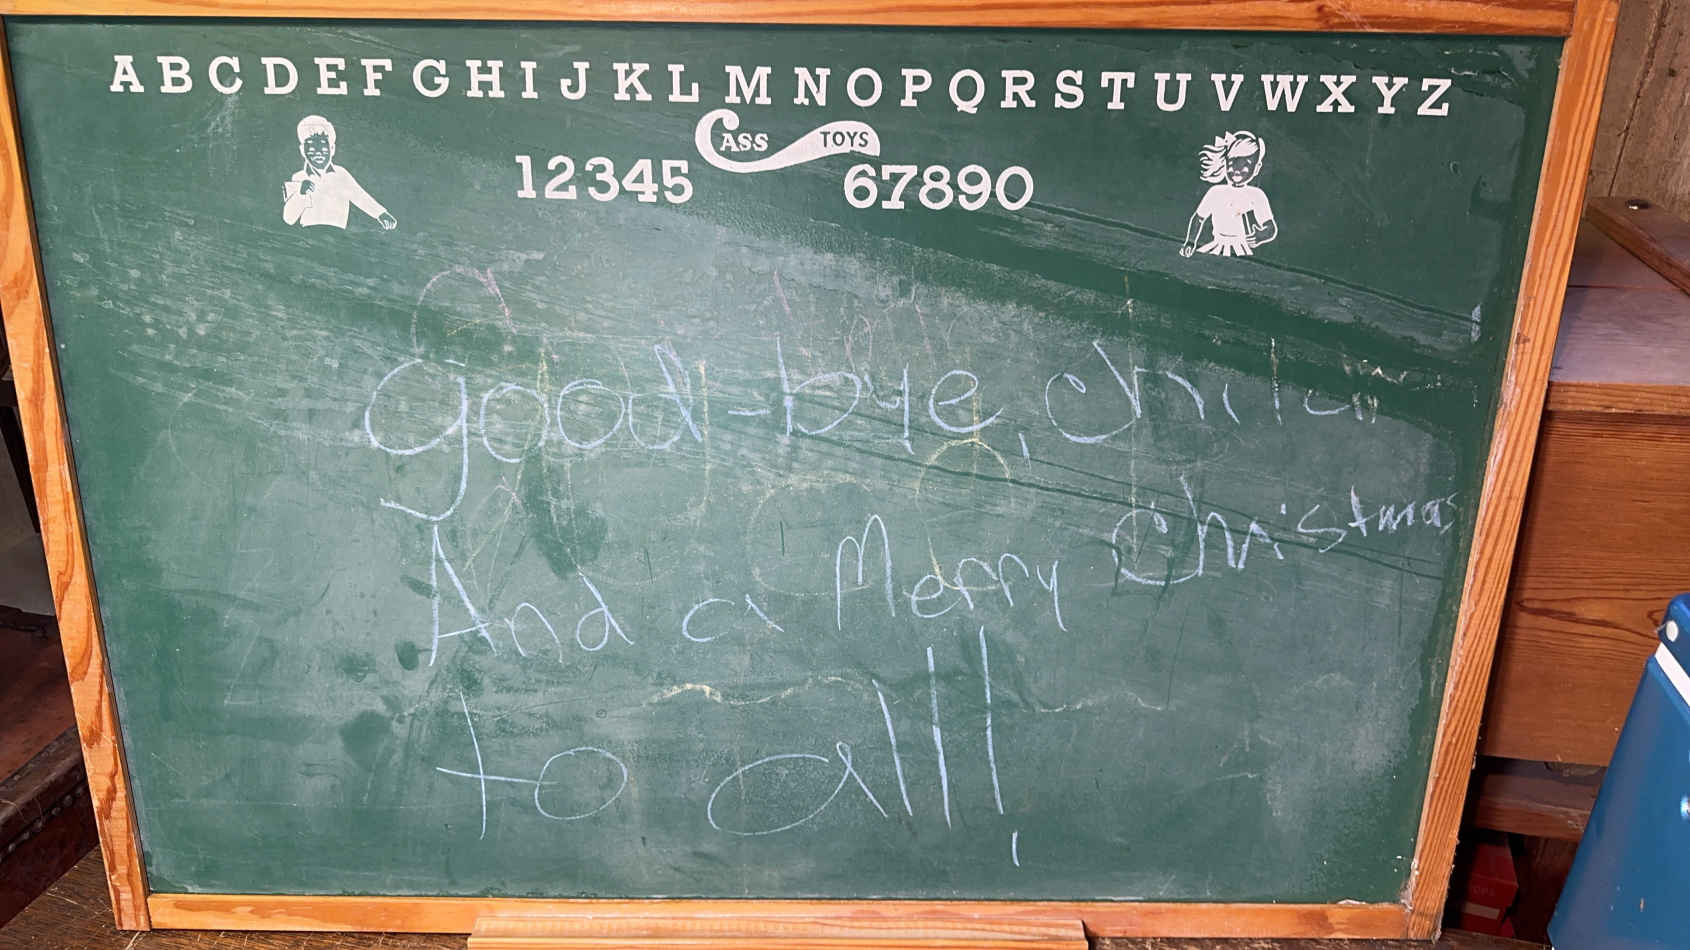 A B C D E F G H I J K L M N O P Q R S T U V W X Y Z
CASS TOYS
12345 67890
Good-bye,
And a Merry Christmas
to all!